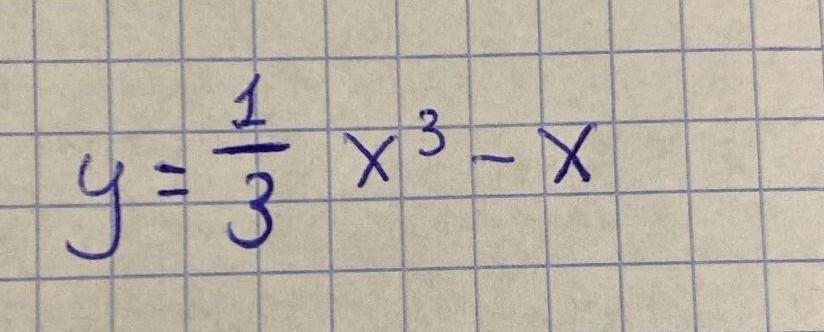 y = 1/3 x³ - x